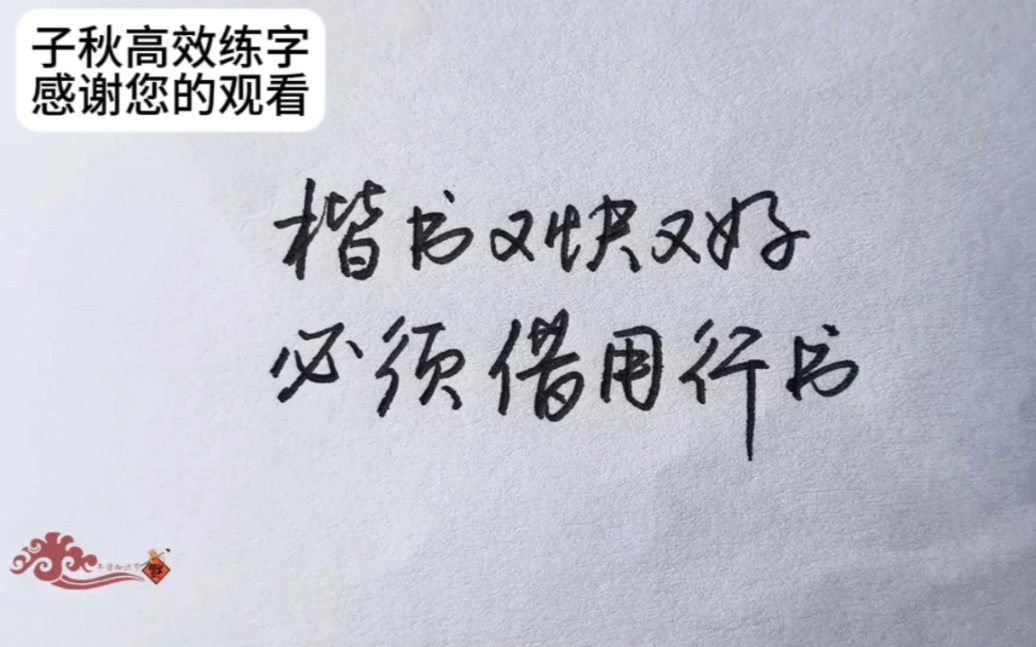 子秋高效练字
感谢您的观看
楷书又快又好
必须借用行书